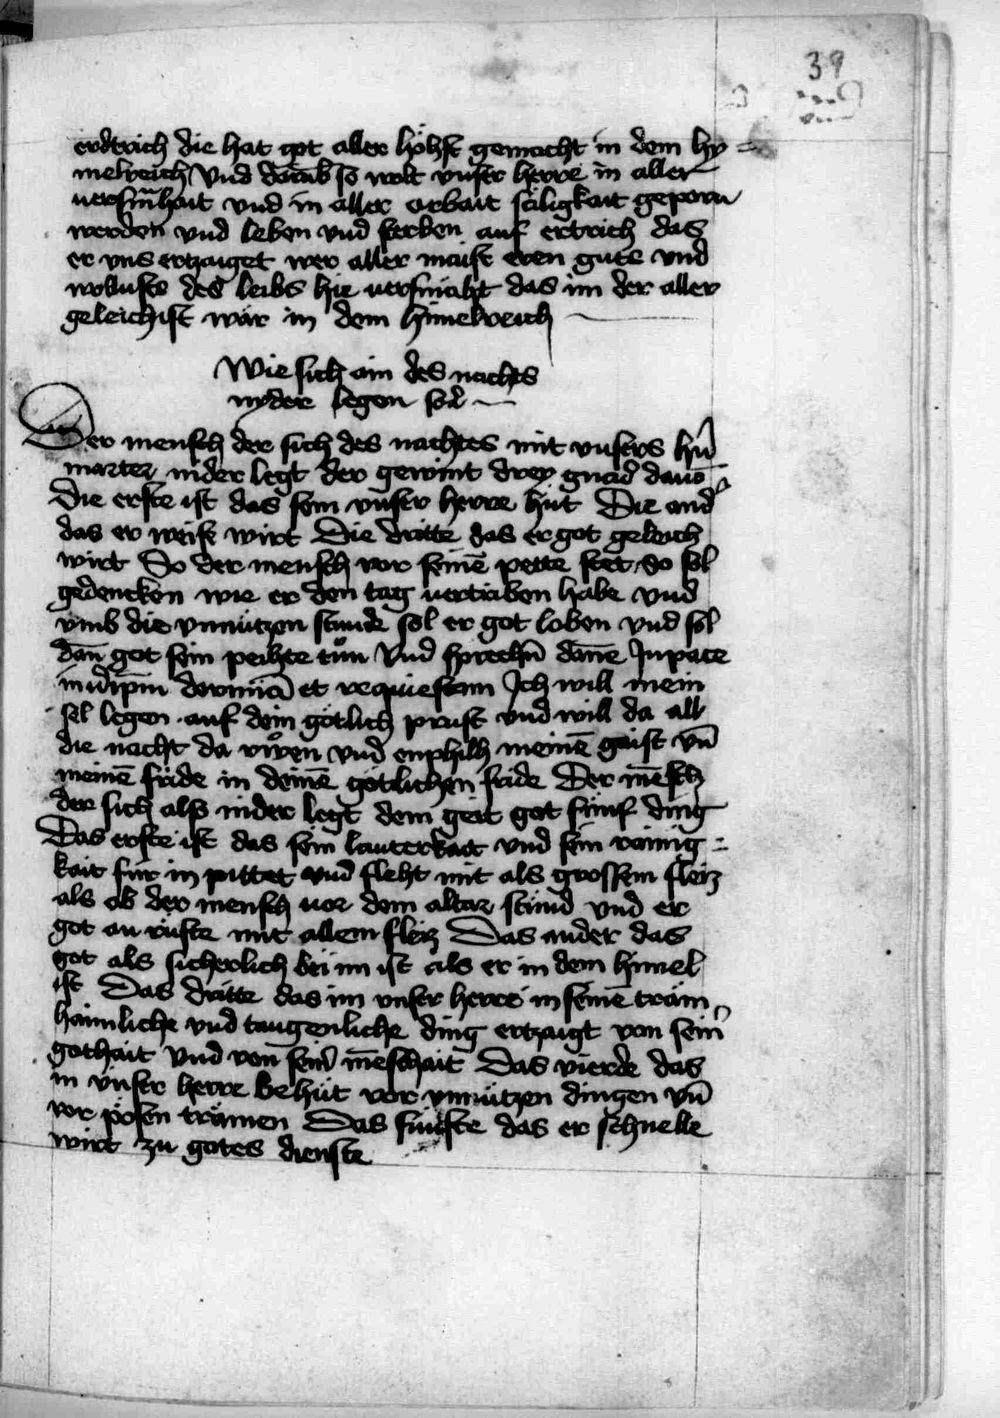 39
erdtrich die hat got aller höhst gemacht in dem hy-
melreich Vnd darab so wolt vnser herre in aller
versmahait vnd in aller arbait säligkait geporn
werden vnd leben vnd sterben auf ertrich das
er vns ertzaiget wer aller maist eren guts vnd
wollusts des leibs hie versmäht das im der aller
geleichist wär in dem himelreich
Wie sich ain des nachts
nyder legen sol
Der mensch der sich des nachtes mit vnsers hrn̄
marter nider legt der gewint drey gnad dauō
Die erste ist das sein vnser herre hüt Die and
das er weise wirt Die dritte das er got geleich
wirt So der mensch vor seinē pette stet so sol
gedencken wie er den tag vertriben habe vnd
vmb die vnnützen stunde sol er got loben vnd sol
dan̄ got sein peichte tůn Vnd sprechn̄ dan̄e Jn pace
in id ip̄m dormiā et requiescam Jch will mein
sel legen auf dein götlich prust vnd will da all
die nacht da růen vnd enphilh meinē gaist vn̄
meinē fride in deinē götlichen fride Der mēsch
der sich alss nider legt dem geit got fünf ding
Das erste ist das sein lauterkait vnd sein rainig-
kait für in pittet vnd fleht mit als grossem fleiz
als ob der mensch vor dem altar stünd vnd er
got an rüfte mit allem fleiz Das ander das
got als sicherlich bei im ist als er in dem himel
ist Das dritte das im vnser herre in seinē träm
haimliche vnd taugenliche ding ertzaigt von sein̄
gothait Vnd von sein̄ mēschait Das vierde das
in vnser herre behüt vor vnnützen dingen vn̄
vor pösen trämen Das fünfte das er schnelle
wirt zu gotes dienste